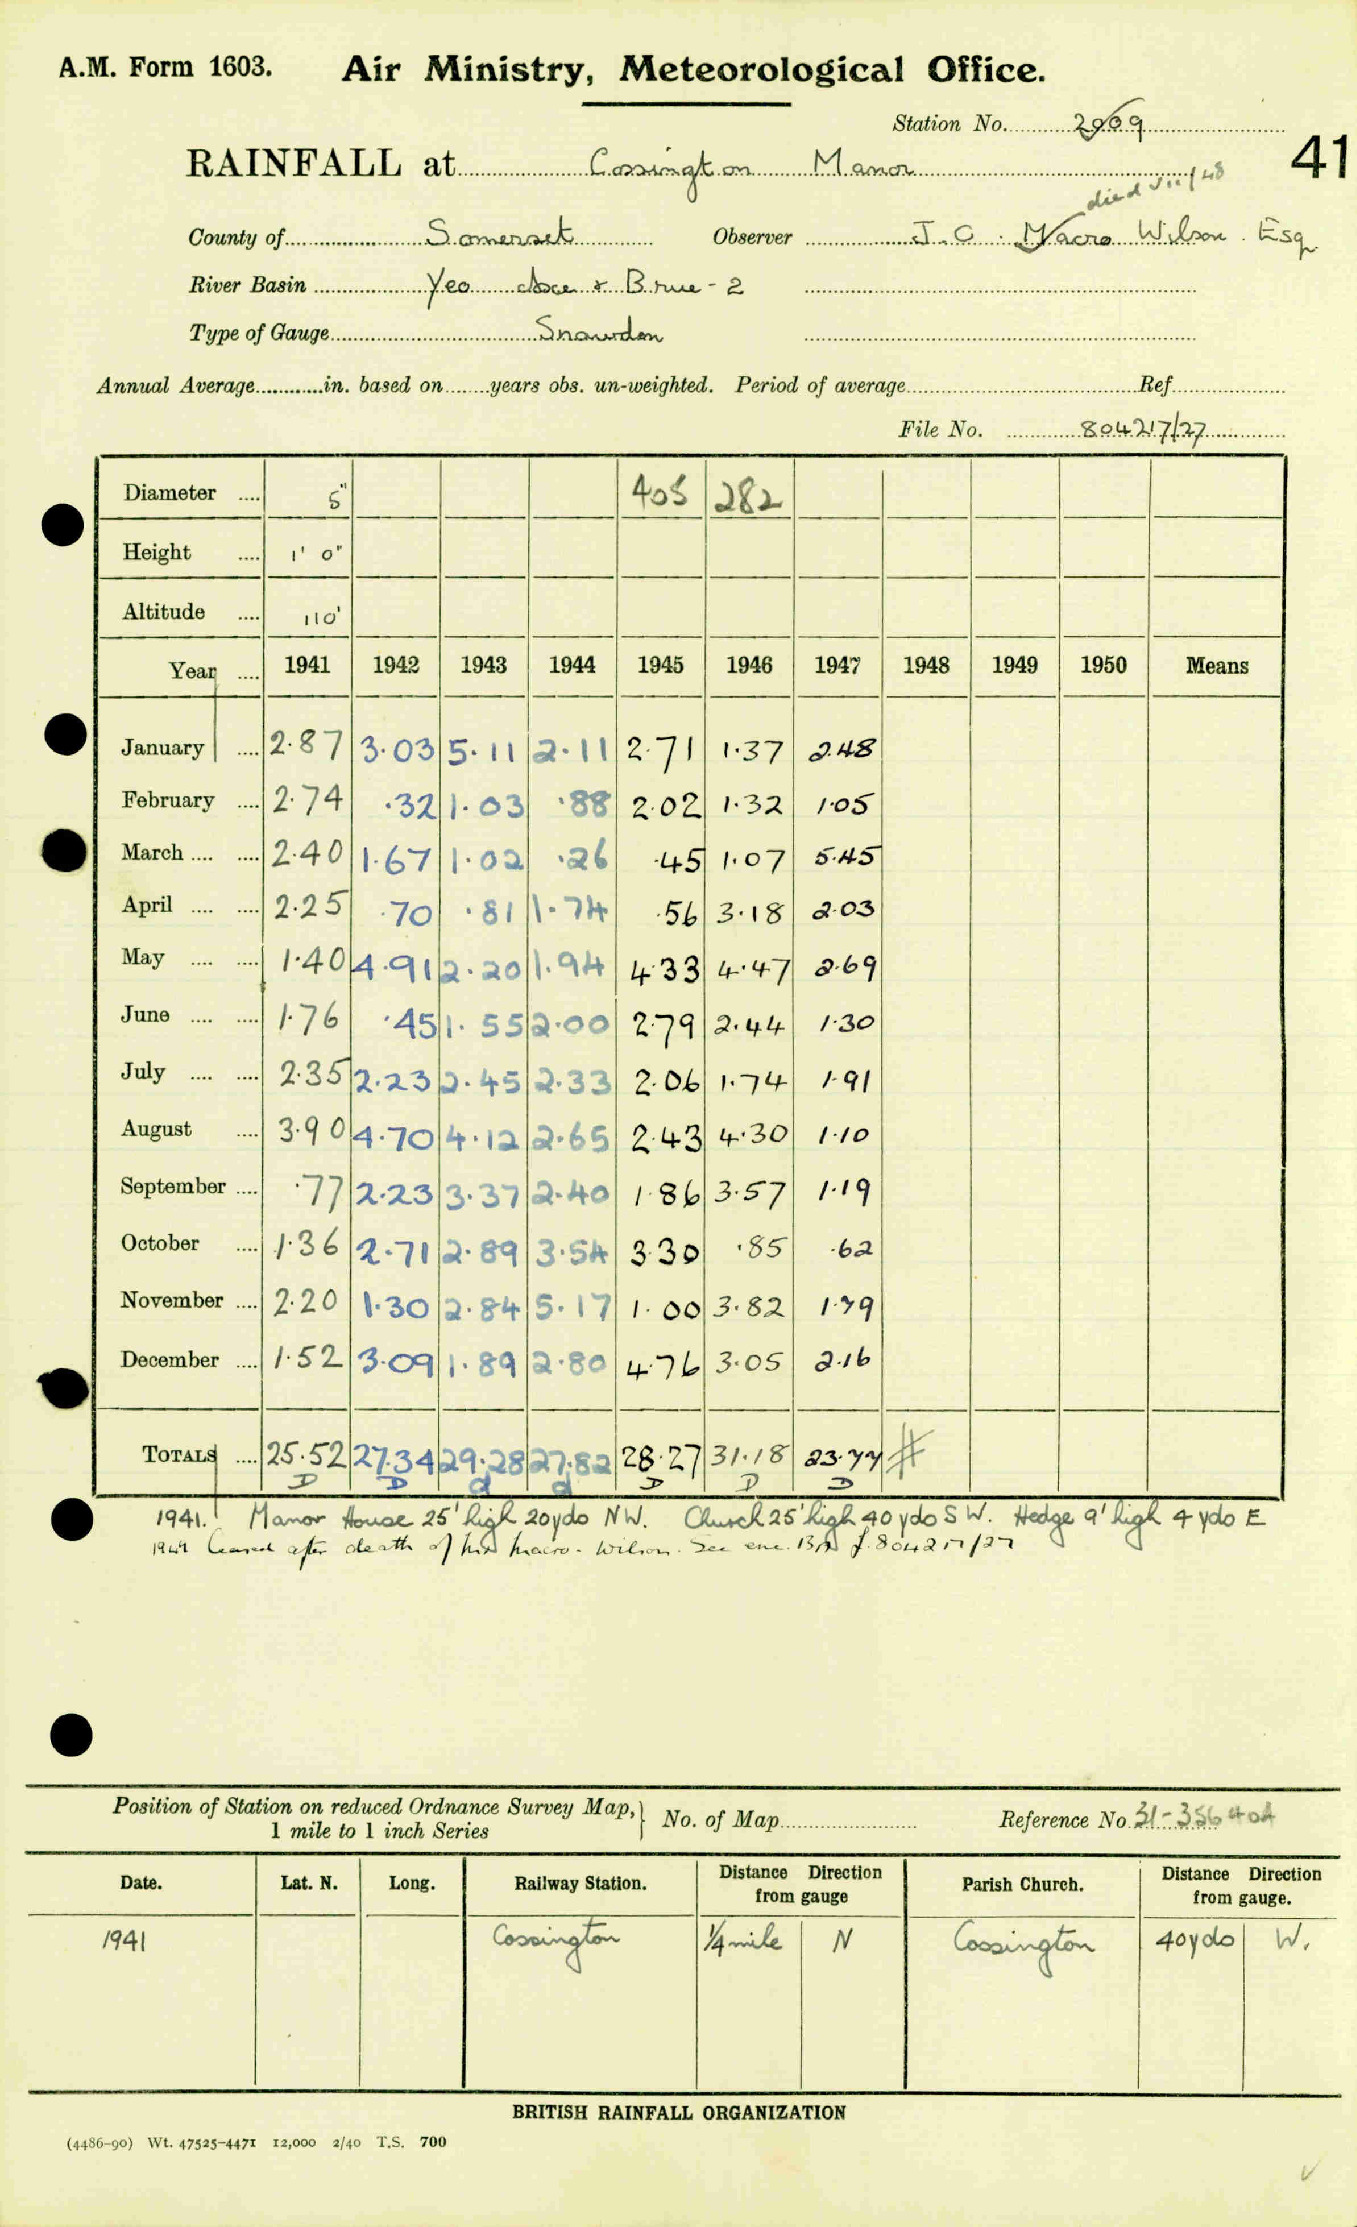 A.M. Form 1603. Air Ministry, Meteorological Office.
Station No. 2009
41
RAINFALL at Cossington Manor
died VII/48
County of Somerset Observer J. C. Macro Wilson. Esq
River Basin Yeo Axe & Brue - 2
Type of Gauge Snowdon
Annual Average in. based on years obs. un-weighted. Period of average Ref
File No. 804217/27
Diameter .... 5" 405 282
Height .... 1' 0"
Altitude .... 110'
Year .... 1941 1942 1943 1944 1945 1946 1947 1948 1949 1950 Means
January .... 2.87 3.03 5.11 2.11 2.71 1.37 2.48
February .... 2.74 .32 1.03 .88 2.02 1.32 1.05
March .... .... 2.40 1.67 1.02 .26 .45 1.07 5.45
April .... .... 2.25 .70 .81 1.74 .56 3.18 2.03
May .... .... 1.40 4.91 2.20 1.94 4.33 4.47 2.69
June .... .... 1.76 .45 1.55 2.00 2.79 2.44 1.30
July .... .... 2.35 2.23 2.45 2.33 2.06 1.74 1.91
August .... 3.90 4.70 4.12 2.65 2.43 4.30 1.10
September .... .77 2.23 3.37 2.40 1.86 3.57 1.19
October .... 1.36 2.71 2.89 3.54 3.30 .85 .62
November .... 2.20 1.30 2.84 5.17 1.00 3.82 1.79
December .... 1.52 3.09 1.89 2.80 4.76 3.05 2.16
TOTALS .... 25.52 27.34 29.28 27.82 28.27 31.18 23.77 #
D D d d D D D
1941. Manor House 25' high 20 yds NW. Church 25' high 40 yds SW. Hedge 9' high 4 yds E
Ceased after death of Mr Macro-Wilson. See enc. 13A f. 804217/27
Position of Station on reduced Ordnance Survey Map, 1 mile to 1 inch Series } No. of Map Reference No. 31-356404
Date. Lat. N. Long. Railway Station. Distance Direction from gauge Parish Church. Distance Direction from gauge.
1941 Cossington 1/4 mile N Cossington 40 yds W.
BRITISH RAINFALL ORGANIZATION
(4486-90) Wt. 47525-4471 12,000 2/40 T.S. 700